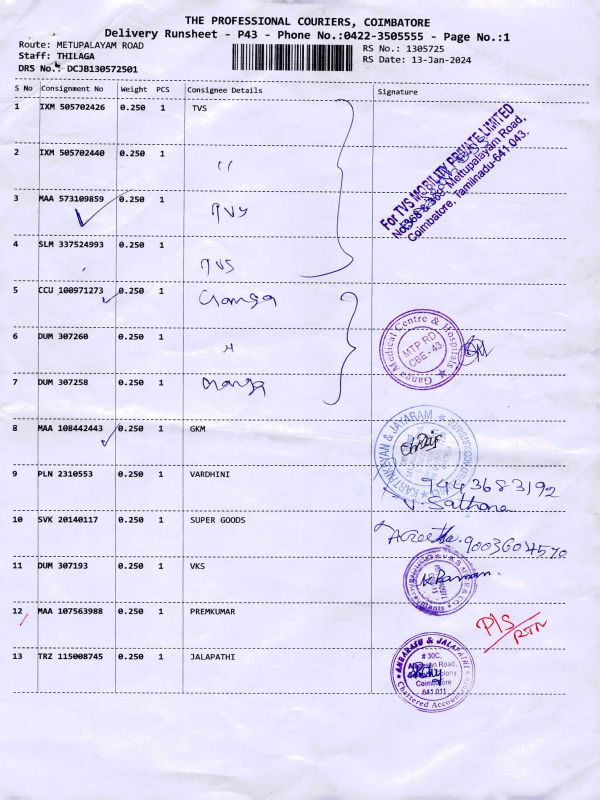 THE PROFESSIONAL COURIERS, COIMBATORE
Delivery Runsheet - P43 - Phone No.:0422-3505555 - Page No.:1
Route: METUPALAYAM ROAD
RS No.: 1305725
Staff: THILAGA
RS Date: 13-Jan-2024
DRS No.: DCJB130572501
S No Consignment No Weight PCS Consignee Details Signature
1 IXM 505702426 0.250 1 TVS
For TVS MOBILITY PRIVATE LIMITED
No.368 & 369, Mettupalayam Road,
Coimbatore, Tamilnadu-641 043.
2 IXM 505702440 0.250 1 "
3 MAA 573109859 0.250 1 TVS
4 SLM 337524993 0.250 1 TVS
5 CCU 100971273 0.250 1 Ganga
Ganga Medical Centre & Hospitals
MTP RD
CBE - 43
6 DUM 307260 0.250 1 "
7 DUM 307258 0.250 1 Ganga
8 MAA 108442443 0.250 1 GKM
KARTHIKEYAN & JAYARAM
9 PLN 2310553 0.250 1 VARDHINI
9443683192
V. Sathana
10 SVK 20140117 0.250 1 SUPER GOODS
9003604570
11 DUM 307193 0.250 1 VKS
Raman.
12 MAA 107563988 0.250 1 PREMKUMAR
P/S
RTN
13 TRZ 115008745 0.250 1 JALAPATHI
ANBARASU & JALAPATHI
# 30C,
Road,
Colony,
Coimbatore
641 011
Chartered Accountants